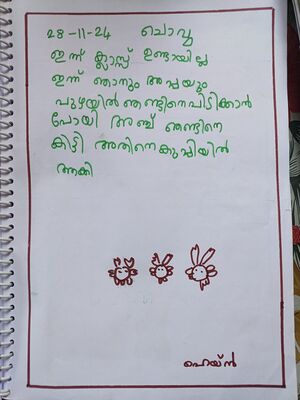 28-11-24 ചൊവ്വ
ഇന്ന് ക്ലാസ്സ് ഉണ്ടായില്ല
ഇന്ന് ഞാനും അപ്പയും
പുഴയിൽ ഞണ്ടിനെപിടിക്കാൻ
പോയി അഞ്ച് ഞണ്ടിനെ
കിട്ടി അതിനെകുപ്പിയിൽ
ആക്കി
ഹെയ്ൻ